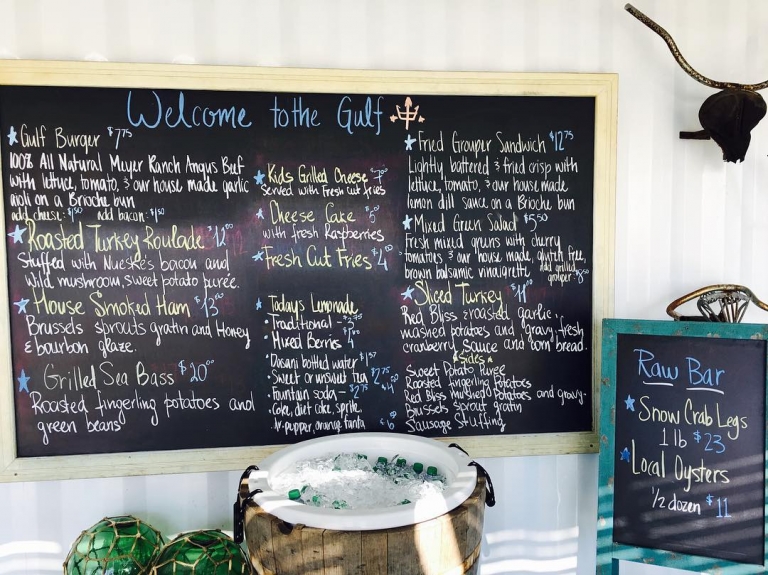 Welcome to the Gulf
Gulf Burger $7.75
100% All Natural Meyer Ranch Angus Beef
with lettuce, tomato, & our house made garlic
aioli on a Brioche bun
add cheese: $1.50 add bacon: $1.50
Roasted Turkey Roulade $12.00
Stuffed with Nueske's bacon and
wild mushroom, sweet potato puree.
House Smoked Ham $13.00
Brussels sprouts gratin and Honey
& bourbon glaze.
Grilled Sea Bass $20.00
Roasted fingerling potatoes and
green beans
Kids Grilled Cheese
Served with Fresh cut fries
Cheese Cake $5
with fresh Raspberries
Fresh Cut Fries $4
Todays Lemonade
Traditional -
Mixed Berries
Dasani bottled water
Sweet or unsweet Tea $2.75
fountain soda -
Coke, diet coke, sprite
dr-pepper, orange fanta
Fried Grouper Sandwich $12.75
Lightly battered & fried crisp with
lettuce, tomato, & our house made
lemon dill sauce on a Brioche bun
Mixed Green Salad $5.50
Fresh mixed greens with cherry
tomatoes & our house made, gluten free,
brown balsamic vinaigrette add grilled
grouper
Sliced Turkey
Red Bliss roasted garlic
mashed potatoes and gravy, fresh
cranberry sauce and corn bread.
Sides
Sweet Potato Puree
Roasted fingerling Potatoes
Red Bliss Mashed Potatoes and gravy
Brussels sprout gratin
Sausage Stuffing
Raw Bar
Snow Crab Legs
1 lb $23
Local Oysters
1/2 dozen $11